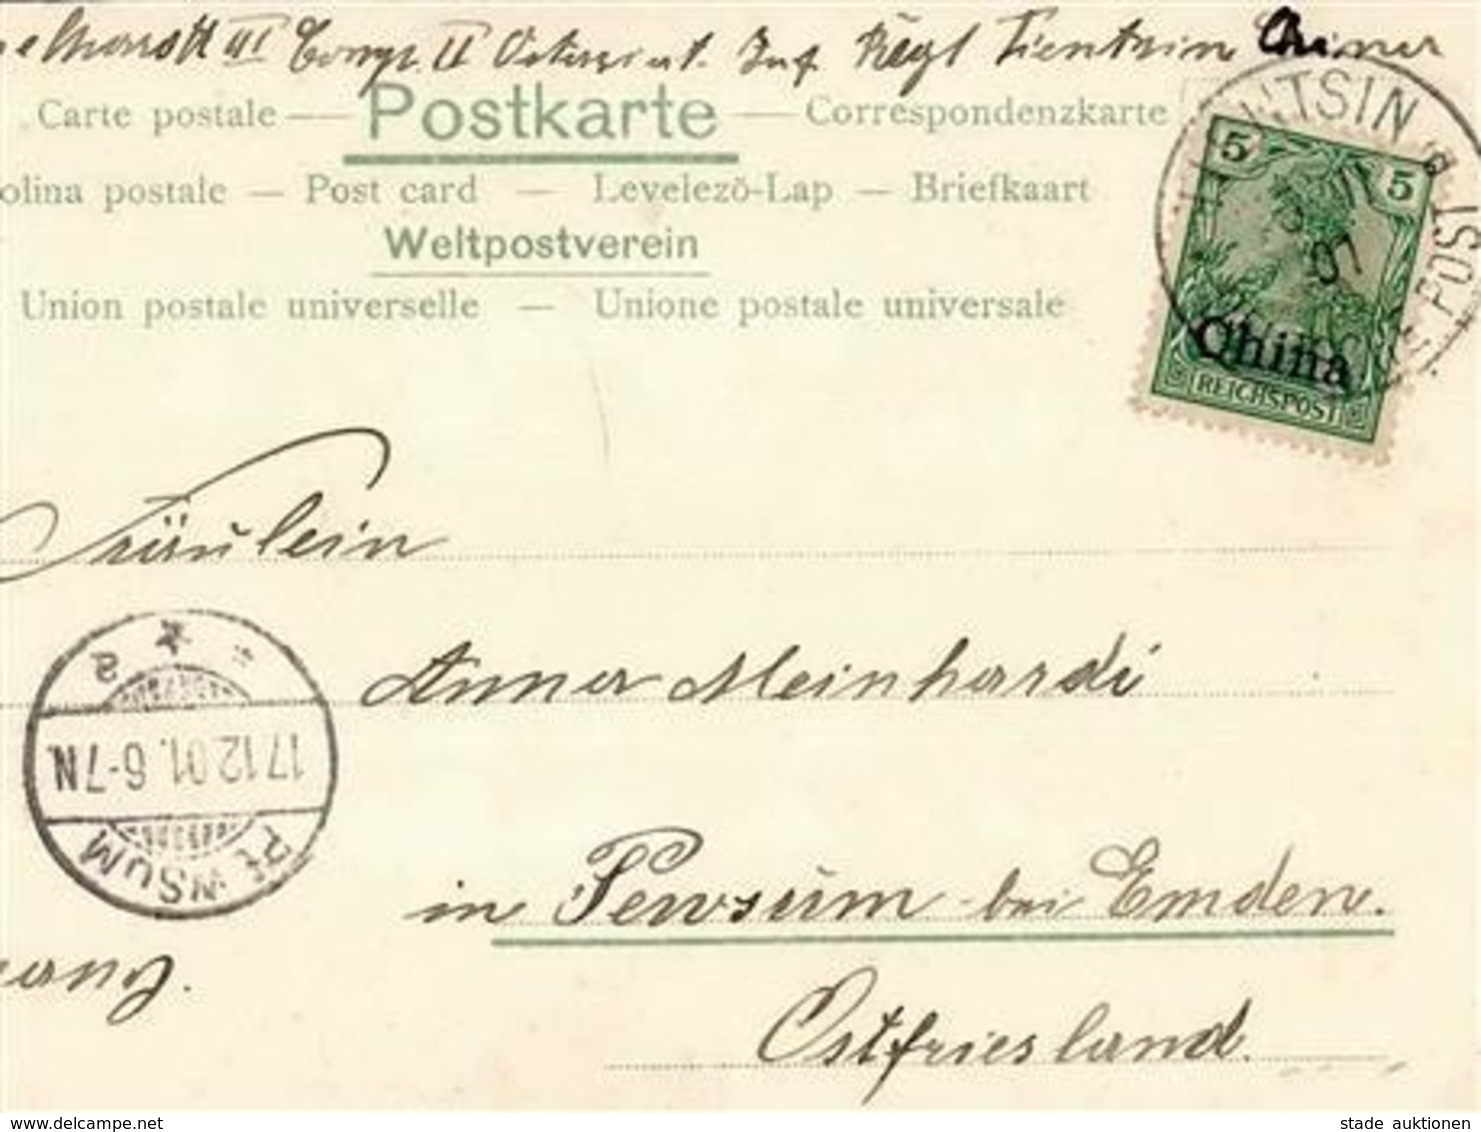 III Comp. II Ostasiat. Inf. Regt Tientsin China
Carte postale — Postkarte — Correspondenzkarte
olina postale — Post card — Levelező-Lap — Briefkaart
Weltpostverein
Union postale universelle — Unione postale universale
TIENTSIN a
DEUTSCHE POST
01
5 5
China
REICHSPOST
Fräulein
Anna Meinhardi
in Pewsum bei Emden.
Ostfriesland.
PEWSUM
17.12.01. 6-7N.
* * a
www.delcampe.net
stade auktionen